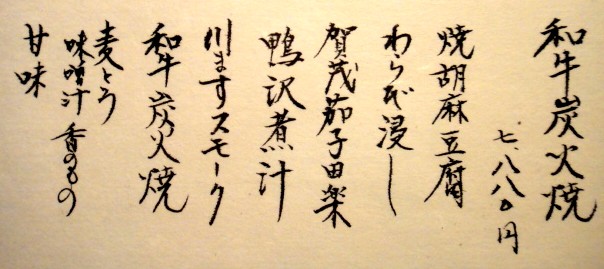 和牛炭火焼
七、八八〇円
焼胡麻豆腐
わらび浸し
賀茂茄子田楽
鴨沢煮汁
川ますスモーク
和牛炭火焼
麦とろ
味噌汁 香のもの
甘味